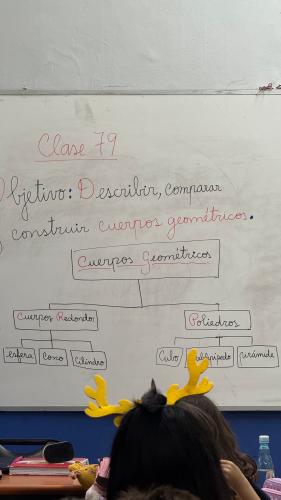 Clase 79
Objetivo: Describir, comparar
y construir cuerpos geométricos.
Cuerpos Geométricos
Cuerpos Redondos Poliedros
esfera Cono Cilindro Cubo pirámide